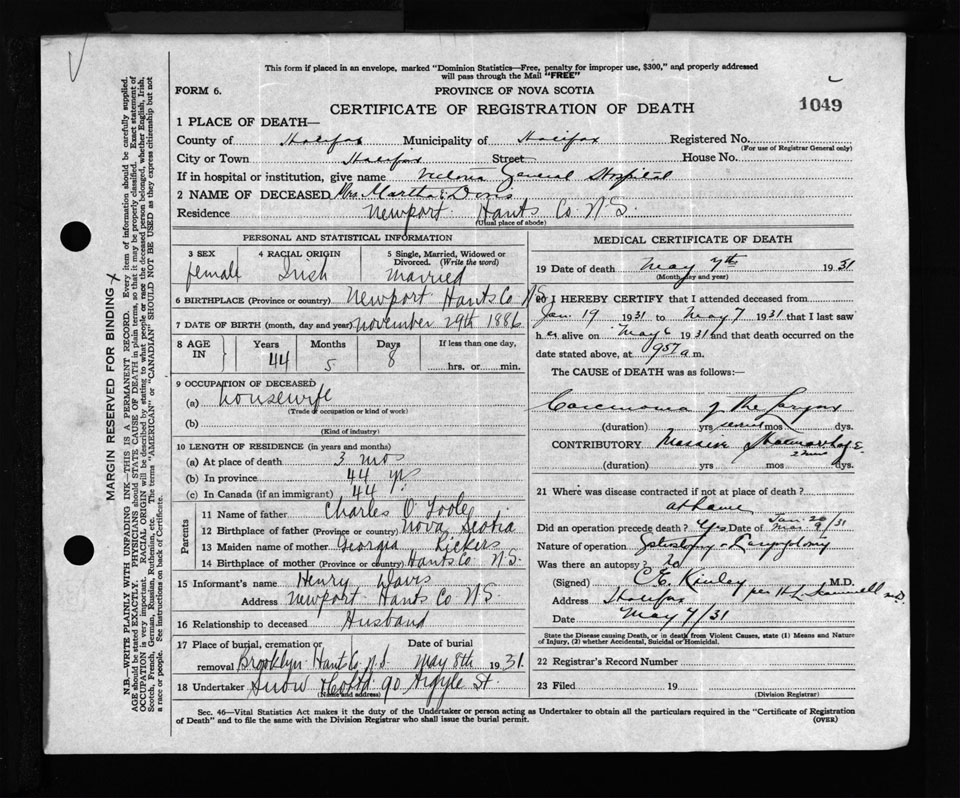 This form if placed in an envelope, marked "Dominion Statistics—Free, penalty for improper use, $300," and properly addressed
will pass through the Mail "FREE"
FORM 6.
PROVINCE OF NOVA SCOTIA
CERTIFICATE OF REGISTRATION OF DEATH
1049
1 PLACE OF DEATH—
County of Halifax Municipality of Halifax Registered No.
(For use of Registrar General only)
City or Town Halifax Street House No.
If in hospital or institution, give name Victoria General Hospital
2 NAME OF DECEASED Mrs. Martha Davis
Residence Newport Hants Co N.S.
(Usual place of abode)
PERSONAL AND STATISTICAL INFORMATION
3 SEX 4 RACIAL ORIGIN 5 Single, Married, Widowed or
Divorced. (Write the word)
female Irish Married
6 BIRTHPLACE (Province or country) Newport Hants Co N.S.
7 DATE OF BIRTH (month, day and year) November 29th 1886
8 AGE IN Years Months Days If less than one day,
44 5 8 hrs. or min.
9 OCCUPATION OF DECEASED
(a) housewife
(Trade or occupation or kind of work)
(b)
(Kind of industry)
10 LENGTH OF RESIDENCE (in years and months)
(a) At place of death 3 mos
(b) In province 44 yr
(c) In Canada (if an immigrant) 44 yr
Parents
11 Name of father Charles O Toole
12 Birthplace of father (Province or country) Nova Scotia
13 Maiden name of mother Georgia Rickers
14 Birthplace of mother (Province or country) Hants Co N.S.
15 Informant's name Henry Davis
Address Newport Hants Co N.S.
16 Relationship to deceased Husband
17 Place of burial, cremation or Date of burial
removal Brooklyn Hants Co. N.S May 8th 1931.
18 Undertaker Snow & Co Ltd 90 Argyle St.
(Name and address)
MEDICAL CERTIFICATE OF DEATH
19 Date of death May 7th 1931
(Month, day and year)
20 I HEREBY CERTIFY that I attended deceased from
Jan. 19 1931 to May 7 1931 that I last saw
her alive on May 6 1931 and that death occurred on the
date stated above, at 957 a m.
The CAUSE of DEATH was as follows:—
Carcinoma of the Larynx
(duration) yrs several mos dys.
CONTRIBUTORY Massive Haemorrhage
2 mins
(duration) yrs mos dys.
21 Where was disease contracted if not at place of death?
at home
Did an operation precede death? Yes Date of Jan. 26 /31
Mar 9
Nature of operation
Was there an autopsy? No
(Signed) C.E. Kinley M.D.
per H.L. Scammell M.D.
Address Halifax
Date May 7/31
State the Disease causing Death, or in death from Violent Causes, state (1) Means and Nature
of Injury, (2) whether Accidental, Suicidal or Homicidal.
22 Registrar's Record Number
23 Filed 19
(Division Registrar)
Sec. 46—Vital Statistics Act makes it the duty of the Undertaker or person acting as Undertaker to obtain all the particulars required in the "Certificate of Registration
of Death" and to file the same with the Division Registrar who shall issue the burial permit.
(OVER)
MARGIN RESERVED FOR BINDING
N.B.—WRITE PLAINLY WITH UNFADING INK—THIS IS A PERMANENT RECORD. Every item of information should be carefully supplied.
AGE should be stated EXACTLY. PHYSICIANS should STATE CAUSE OF DEATH in plain terms, so that it may be properly classified. Exact statement of
OCCUPATION is very important. RACIAL ORIGIN will be described by stating to what people or race the deceased person belonged, whether English, Irish,
Scotch, French, German, Russian, Ruthenian, etc. The terms "AMERICAN" or "CANADIAN" SHOULD NOT BE USED as they express citizenship but not
a race or people. See instructions on back of Certificate.